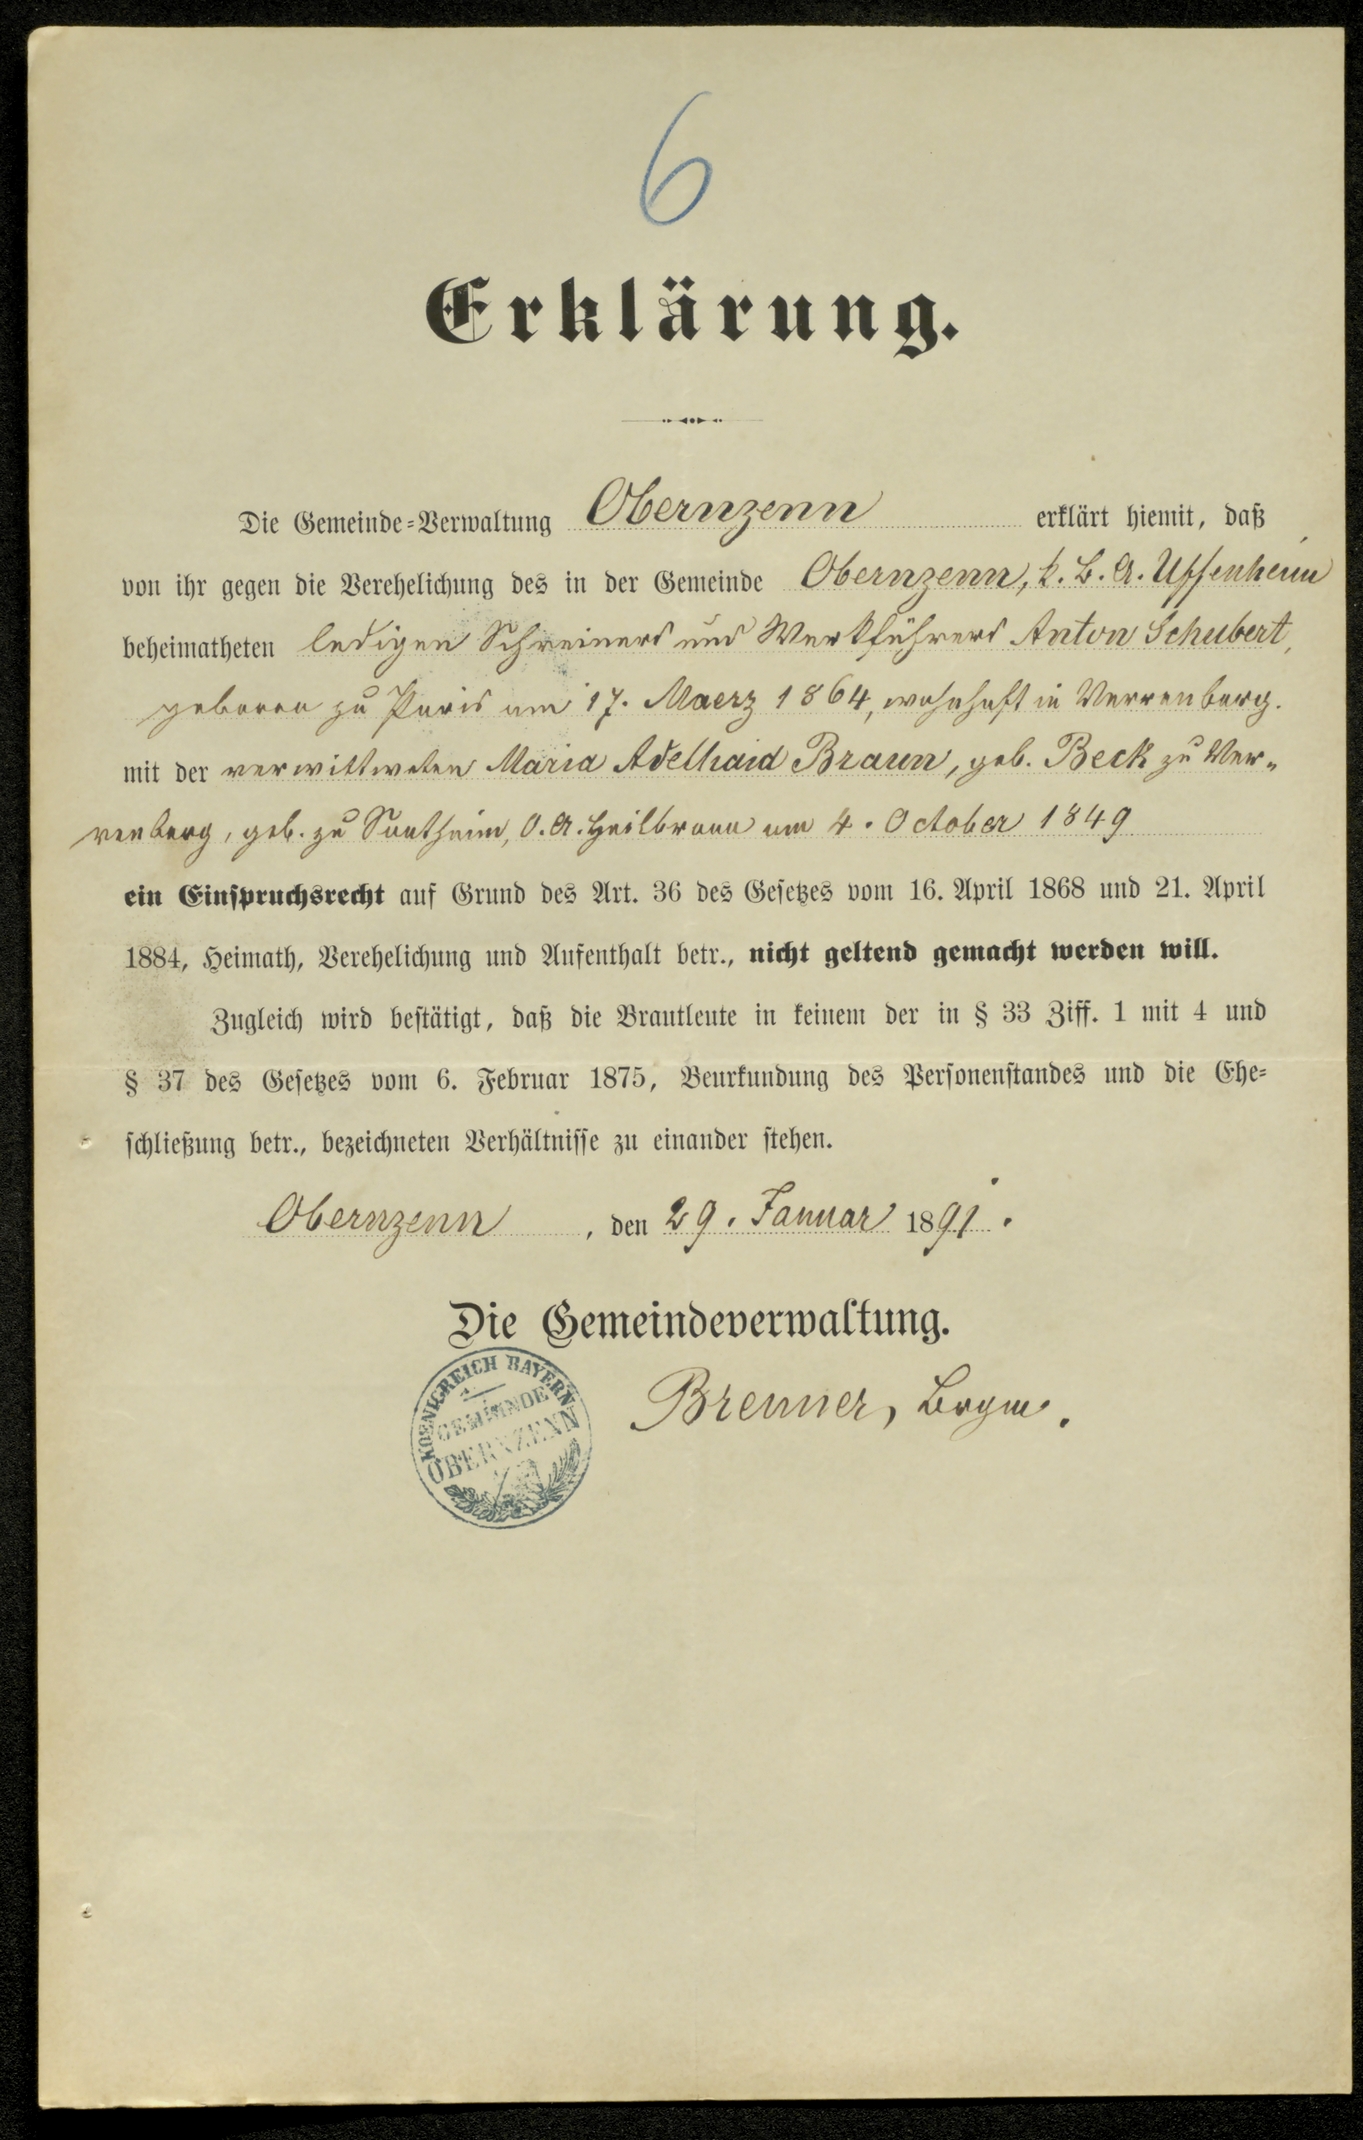 6
Erklärung.
Die Gemeinde-Verwaltung Obernzenn erklärt hiemit, daß
von ihr gegen die Verehelichung des in der Gemeinde Obernzenn, k. B. A. Uffenheim
beheimatheten ledigen Schreiners und Werkführers Anton Schubert,
geboren zu Paris am 17. Maerz 1864, wohnhaft in Verrenberg.
mit der verwittweten Maria Adelhaid Braun, geb. Beck zu Ver-
renberg, geb. zu Sontheim, O. A. Heilbronn am 4. October 1849
ein Einspruchsrecht auf Grund des Art. 36 des Gesetzes vom 16. April 1868 und 21. April
1884, Heimath, Verehelichung und Aufenthalt betr., nicht geltend gemacht werden will.
Zugleich wird bestätigt, daß die Brautleute in keinem der in § 33 Ziff. 1 mit 4 und
§ 37 des Gesetzes vom 6. Februar 1875, Beurkundung des Personenstandes und die Ehe-
schließung betr., bezeichneten Verhältnisse zu einander stehen.
Obernzenn, den 29. Januar 1891.
Die Gemeindeverwaltung.
KOENIGREICH BAYERN
GEMEINDE
OBERNZENN
Brenner, Brgm.